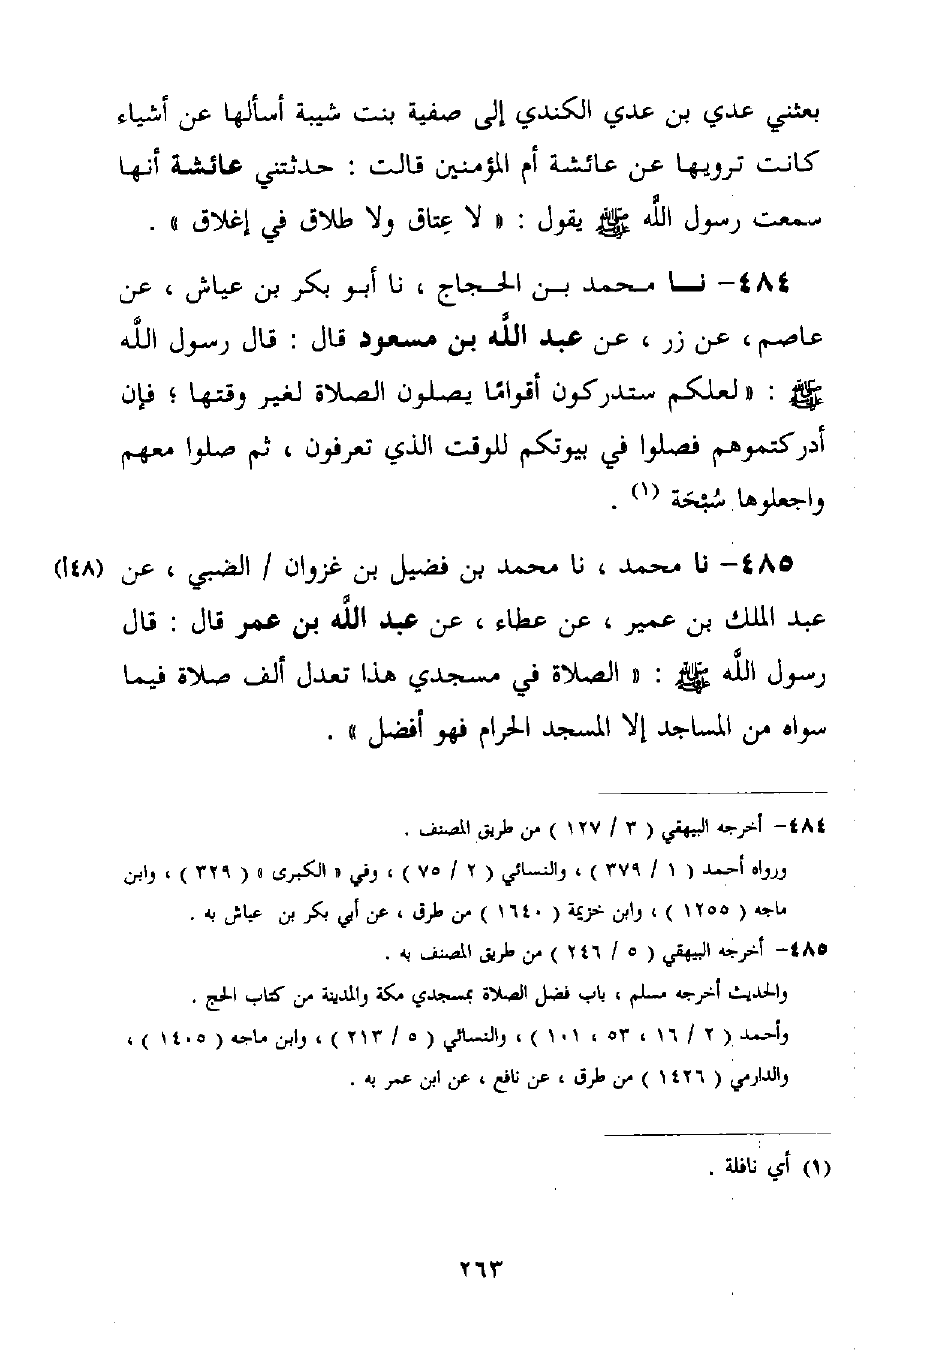 بعثني عدي بن عدي الكندي إلى صفية بنت شيبة أسألها عن أشياء
كانت ترويها عن عائشة أم المؤمنين قالت : حدثتني عائشة أنها
سمعت رسول اللَّه ﷺ يقول : « لا عِتاق ولا طلاق في إغلاق » .
٤٨٤- نـا محمد بـن الحـجاج ، نا أبو بكر بن عياش ، عن
عاصم ، عن زر ، عن عبد اللَّه بن مسعود قال : قال رسول اللَّه
ﷺ : « لعلكم ستدركون أقوامًا يصلون الصلاة لغير وقتها ؛ فإن
أدركتموهم فصلوا في بيوتكم للوقت الذي تعرفون ، ثم صلوا معهم
واجعلوها سُبْحَة (١) .
٤٨٥- نا محمد ، نا محمد بن فضيل بن غزوان / الضبي ، عن (١٤٨أ)
عبد الملك بن عمير ، عن عطاء ، عن عبد اللَّه بن عمر قال : قال
رسول اللَّه ﷺ : « الصلاة في مسجدي هذا تعدل ألف صلاة فيما
سواه من المساجد إلا المسجد الحرام فهو أفضل » .
٤٨٤- أخرجه البيهقي ( ٣ / ١٢٧ ) من طريق المصنف .
ورواه أحمد ( ١ / ٣٧٩ ) ، والنسائي ( ٢ / ٧٥ ) ، وفي « الكبرى » ( ٣٢٩ ) ، وابن
ماجه ( ١٢٥٥ ) ، وابن خزيمة ( ١٦٤٠ ) من طرق ، عن أبي بكر بن عياش به .
٤٨٥- أخرجه البيهقي ( ٥ / ٢٤٦ ) من طريق المصنف به .
والحديث أخرجه مسلم ، باب فضل الصلاة بمسجدي مكة والمدينة من كتاب الحج .
وأحمد ( ٢ / ١٦ ، ٥٣ ، ١٠١ ) ، والنسائي ( ٥ / ٢١٣ ) ، وابن ماجه ( ١٤٠٥ ) ،
والدارمي ( ١٤٢٦ ) من طرق ، عن نافع ، عن ابن عمر به .
(١) أي نافلة .
٢٦٣